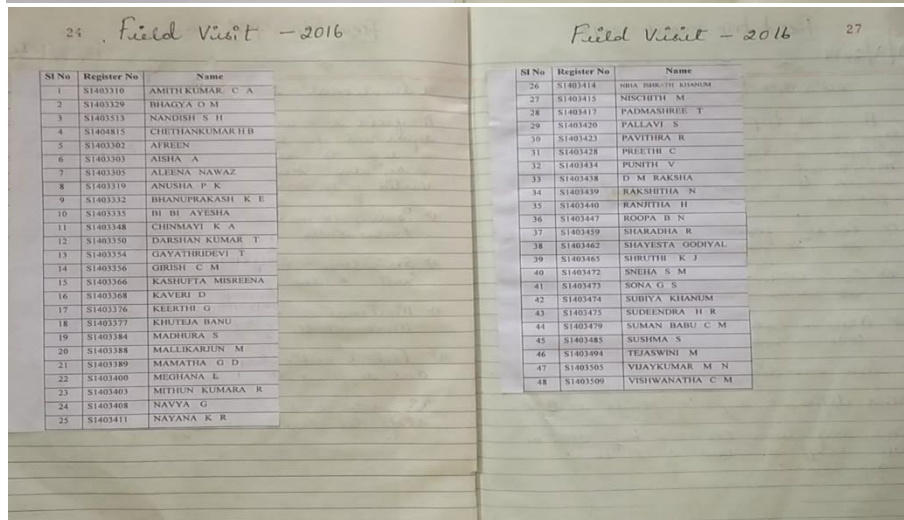 24 . Field Visit - 2016
Sl No Register No Name
1 S1403310 AMITH KUMAR C A
2 S1403329 BHAGYA O M
3 S1403513 NANDISH S H
4 S1404815 CHETHANKUMAR H B
5 S1403302 AFREEN
6 S1403303 AISHA A
7 S1403305 ALEENA NAWAZ
8 S1403319 ANUSHA P K
9 S1403332 BHANUPRAKASH K E
10 S1403335 BI BI AYESHA
11 S1403348 CHINMAYI K A
12 S1403350 DARSHAN KUMAR T
13 S1403354 GAYATHRIDEVI T
14 S1403356 GIRISH C M
15 S1403366 KASHUFTA MISREENA
16 S1403368 KAVERI D
17 S1403376 KEERTHI G
18 S1403377 KHUTEJA BANU
19 S1403384 MADHURA S
20 S1403388 MALLIKARJUN M
21 S1403389 MAMATHA G D
22 S1403400 MEGHANA L
23 S1403403 MITHUN KUMARA R
24 S1403408 NAVYA G
25 S1403411 NAYANA K R
Field Visit - 2016 27
Sl No Register No Name
26 S1403414 KHANUM
27 S1403415 NISCHITH M
28 S1403417 PADMASHREE T
29 S1403420 PALLAVI S
30 S1403423 PAVITHRA R
31 S1403428 PREETHI C
32 S1403434 PUNITH V
33 S1403438 D M RAKSHA
34 S1403439 RAKSHITHA N
35 S1403440 RANJITHA H
36 S1403447 ROOPA B N
37 S1403459 SHARADHA R
38 S1403462 SHAYESTA GODIYAL
39 S1403465 SHRUTHI K J
40 S1403472 SNEHA S M
41 S1403473 SONA G S
42 S1403474 SUBIYA KHANUM
43 S1403475 SUDEENDRA H R
44 S1403479 SUMAN BABU C M
45 S1403485 SUSHMA S
46 S1403494 TEJASWINI M
47 S1403505 VIJAYKUMAR M N
48 S1403509 VISHWANATHA C M